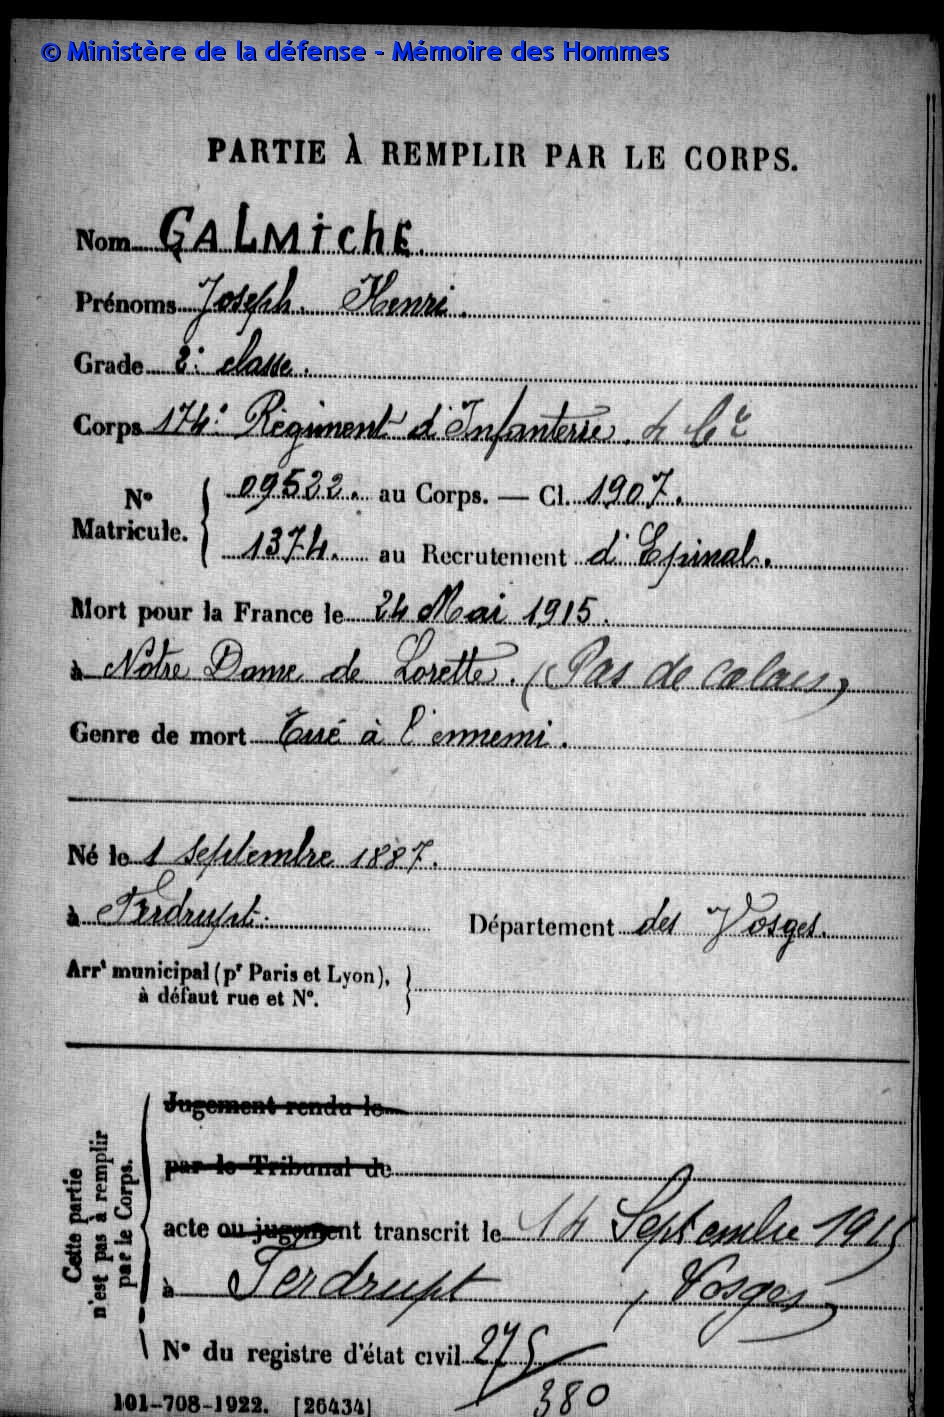 © Ministère de la défense - Mémoire des Hommes
PARTIE À REMPLIR PAR LE CORPS.
Nom GALMICHE.
Prénoms Joseph. Henri.
Grade 2e classe.
Corps 174e Régiment d'Infanterie. 4 Cie
No Matricule. { 09522. au Corps. — Cl. 1907.
1374. au Recrutement d'Epinal.
Mort pour la France le 24 Mai 1915.
à Notre Dame de Lorette. (Pas de calais)
Genre de mort Tué à l'ennemi.
Né le 1 septembre 1887.
à Ferdrupt. Département des Vosges.
Arrt municipal (pr Paris et Lyon), }
à défaut rue et No.
Cette partie n'est pas à remplir par le Corps.
Jugement rendu le
par le Tribunal de
acte ou jugement transcrit le 14 Septembre 1915
à Ferdrupt (Vosges)
No du registre d'état civil 275/380
101-708-1922. [26434]